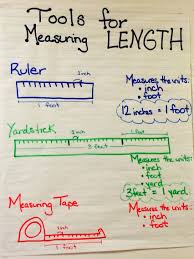 Tools for
Measuring LENGTH
Ruler
1 inch
1 foot
Measures the units:
• inch
• foot
12 inches = 1 foot
Yardstick
1 inch
3 feet
Measures the units:
• inch
• foot
• yard
3 feet = 1 yard
Measuring Tape
1 inch
1 foot
Measures the units:
• inch
• foot